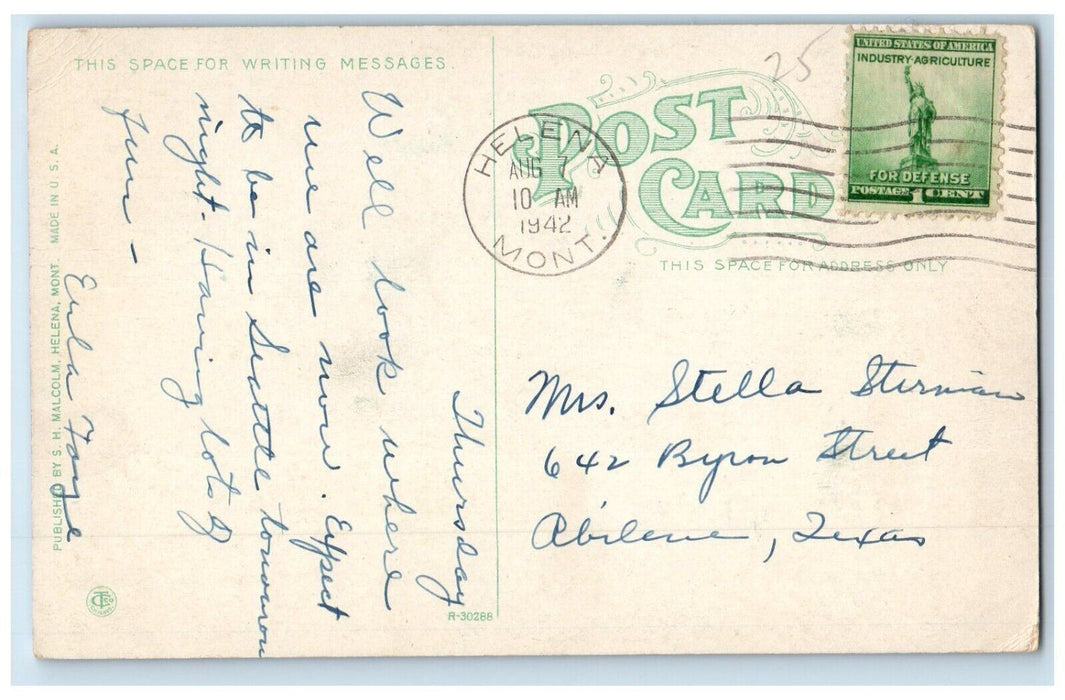 THIS SPACE FOR WRITING MESSAGES.
Thursday
Well look where
we are now. Expect
to be in Seattle tomorrow
night. Having lots of
fun —
Eula Faye
PUBLISHED BY S. H. MALCOLM, HELENA, MONT. MADE IN U.S.A.
R-30288
POST CARD
THIS SPACE FOR ADDRESS ONLY
25
HELENA
AUG 7
10 AM
1942
MONT.
UNITED STATES OF AMERICA
INDUSTRY-AGRICULTURE
FOR DEFENSE
POSTAGE 1 CENT
Mrs. Stella Sterman
642 Byron Street
Abilene, Texas